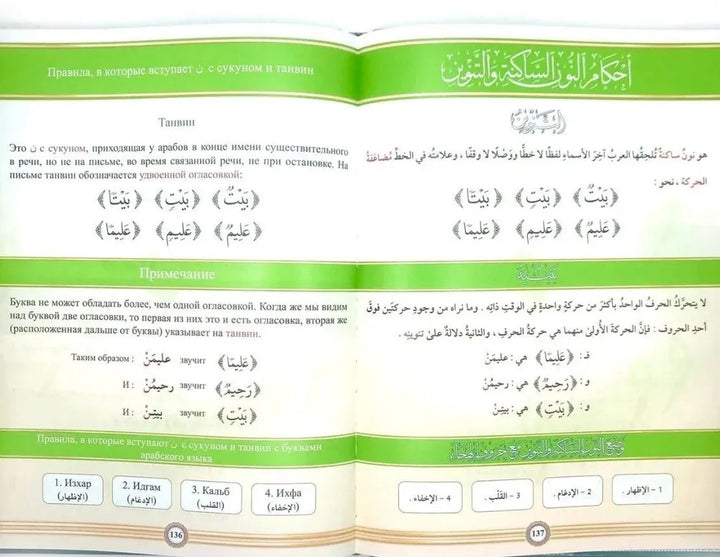 Правила, в которые вступает ن с сукуном и танвин
Танвин
Это ن с сукуном, приходящая у арабов в конце имени существительного
в речи, но не на письме, во время связанной речи, не при остановке. На
письме танвин обозначается удвоенной огласовкой:
﴿بَيْتٌ﴾ ﴿بَيْتٍ﴾ ﴿بَيْتًا﴾
﴿عَلِيمٌ﴾ ﴿عَلِيمٍ﴾ ﴿عَلِيمًا﴾
Примечание
Буква не может обладать более, чем одной огласовкой. Когда же мы видим
над буквой две огласовки, то первая из них это и есть огласовка, вторая же
(расположенная дальше от буквы) указывает на танвин.
Таким образом : عليمَنْ звучит ﴿عَلِيمًا﴾
И : رحيمُنْ звучит ﴿رَحِيمٌ﴾
И : بيتِنْ звучит ﴿بَيْتٍ﴾
Правила, в которые вступают ن с сукуном и танвин с буквами
арабского языка
1. Изхар
(الإظهار)
2. Идгам
(الإدغام)
3. Кальб
(القلب)
4. Ихфа
(الإخفاء)
136
أحكام النون الساكنة والتنوين
التنوين
هو نونٌ ساكنةٌ تُلحِقُها العربُ آخِرَ الأسماءِ لفظًا لا خطًّا ووَصْلًا لا وقفًا ، وعلامتُه في الخطِّ مُضاعَفةُ
الحركة ، نحو :
﴿بَيْتٌ﴾ ﴿بَيْتٍ﴾ ﴿بَيْتًا﴾
﴿عَلِيمٌ﴾ ﴿عَلِيمٍ﴾ ﴿عَلِيمًا﴾
تنبيه
لا يتحرَّكُ الحرفُ الواحدُ بأكثرَ من حركةٍ واحدةٍ في الوقتِ ذاتِه . وما نراه من وجودِ حركتَينِ فوقَ
أحدِ الحروف : فإنَّ الحركةَ الأُولىٰ منهما هي حركةُ الحرفِ ، والثانيةُ دلالةٌ علىٰ تنوينِه .
فـ : ﴿عَلِيمًا﴾ هي : عليمَنْ
و : ﴿رَحِيمٌ﴾ هي : رحيمُنْ
و : ﴿بَيْتٍ﴾ هي : بيتِنْ
وضع النون الساكنة والتنوين مع حروف الهجاء
1 – الإظهار .
2 – الإدغام .
3 – القَلْب .
4 – الإخفاء .
137